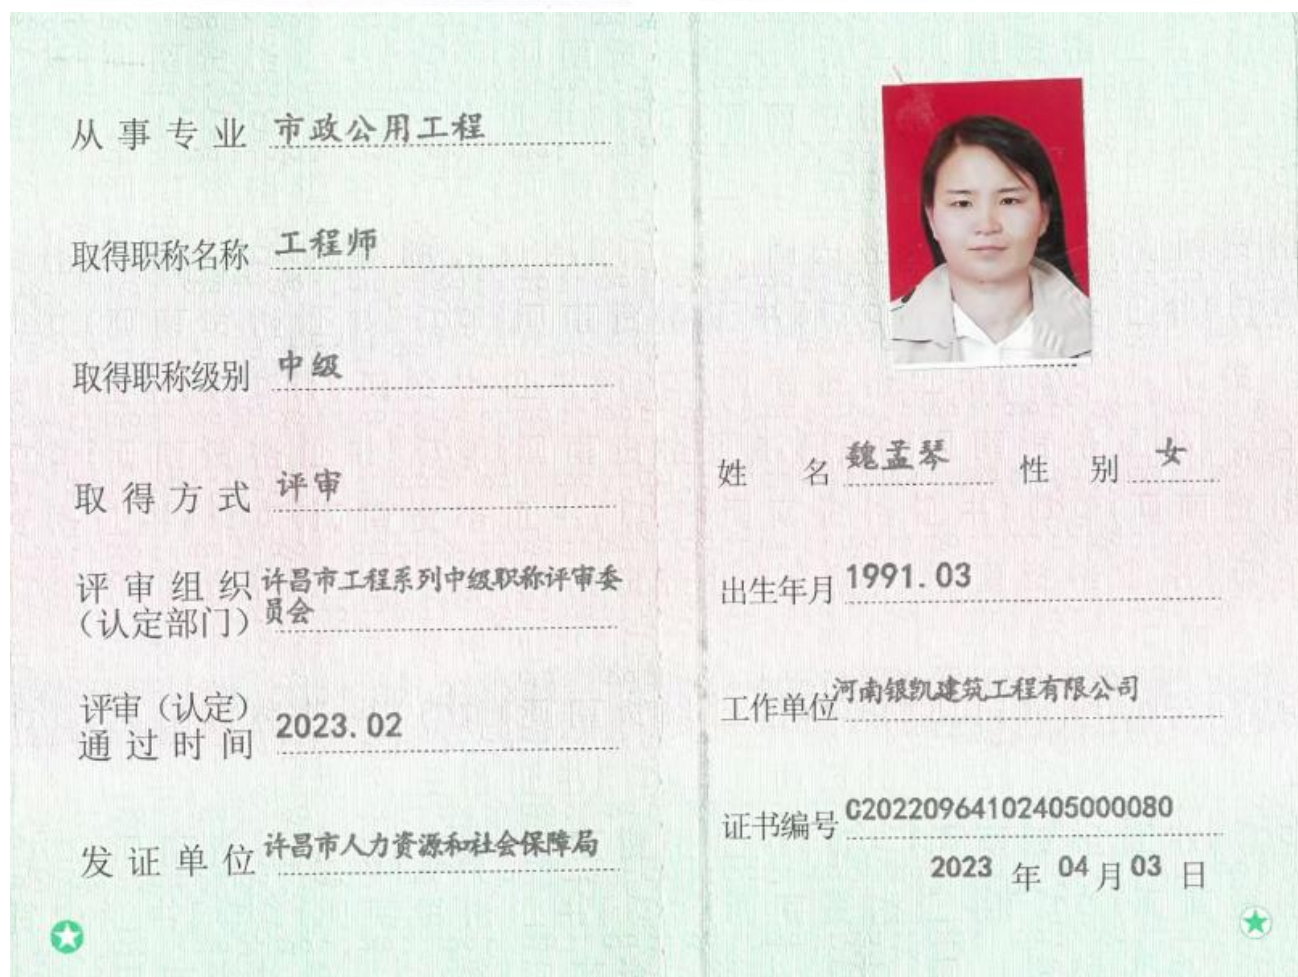 从事专业 市政公用工程
取得职称名称 工程师
取得职称级别 中级
取得方式 评审
评审组织 许昌市工程系列中级职称评审委
(认定部门) 员会
评审(认定)
通过时间 2023.02
发证单位 许昌市人力资源和社会保障局
姓名 魏孟琴 性别 女
出生年月 1991.03
工作单位 河南银凯建筑工程有限公司
证书编号 C20220964102405000080
2023 年 04 月 03 日